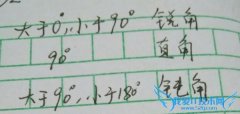 大于0°,小于90° 锐角
90° 直角
大于90°,小于180° 钝角